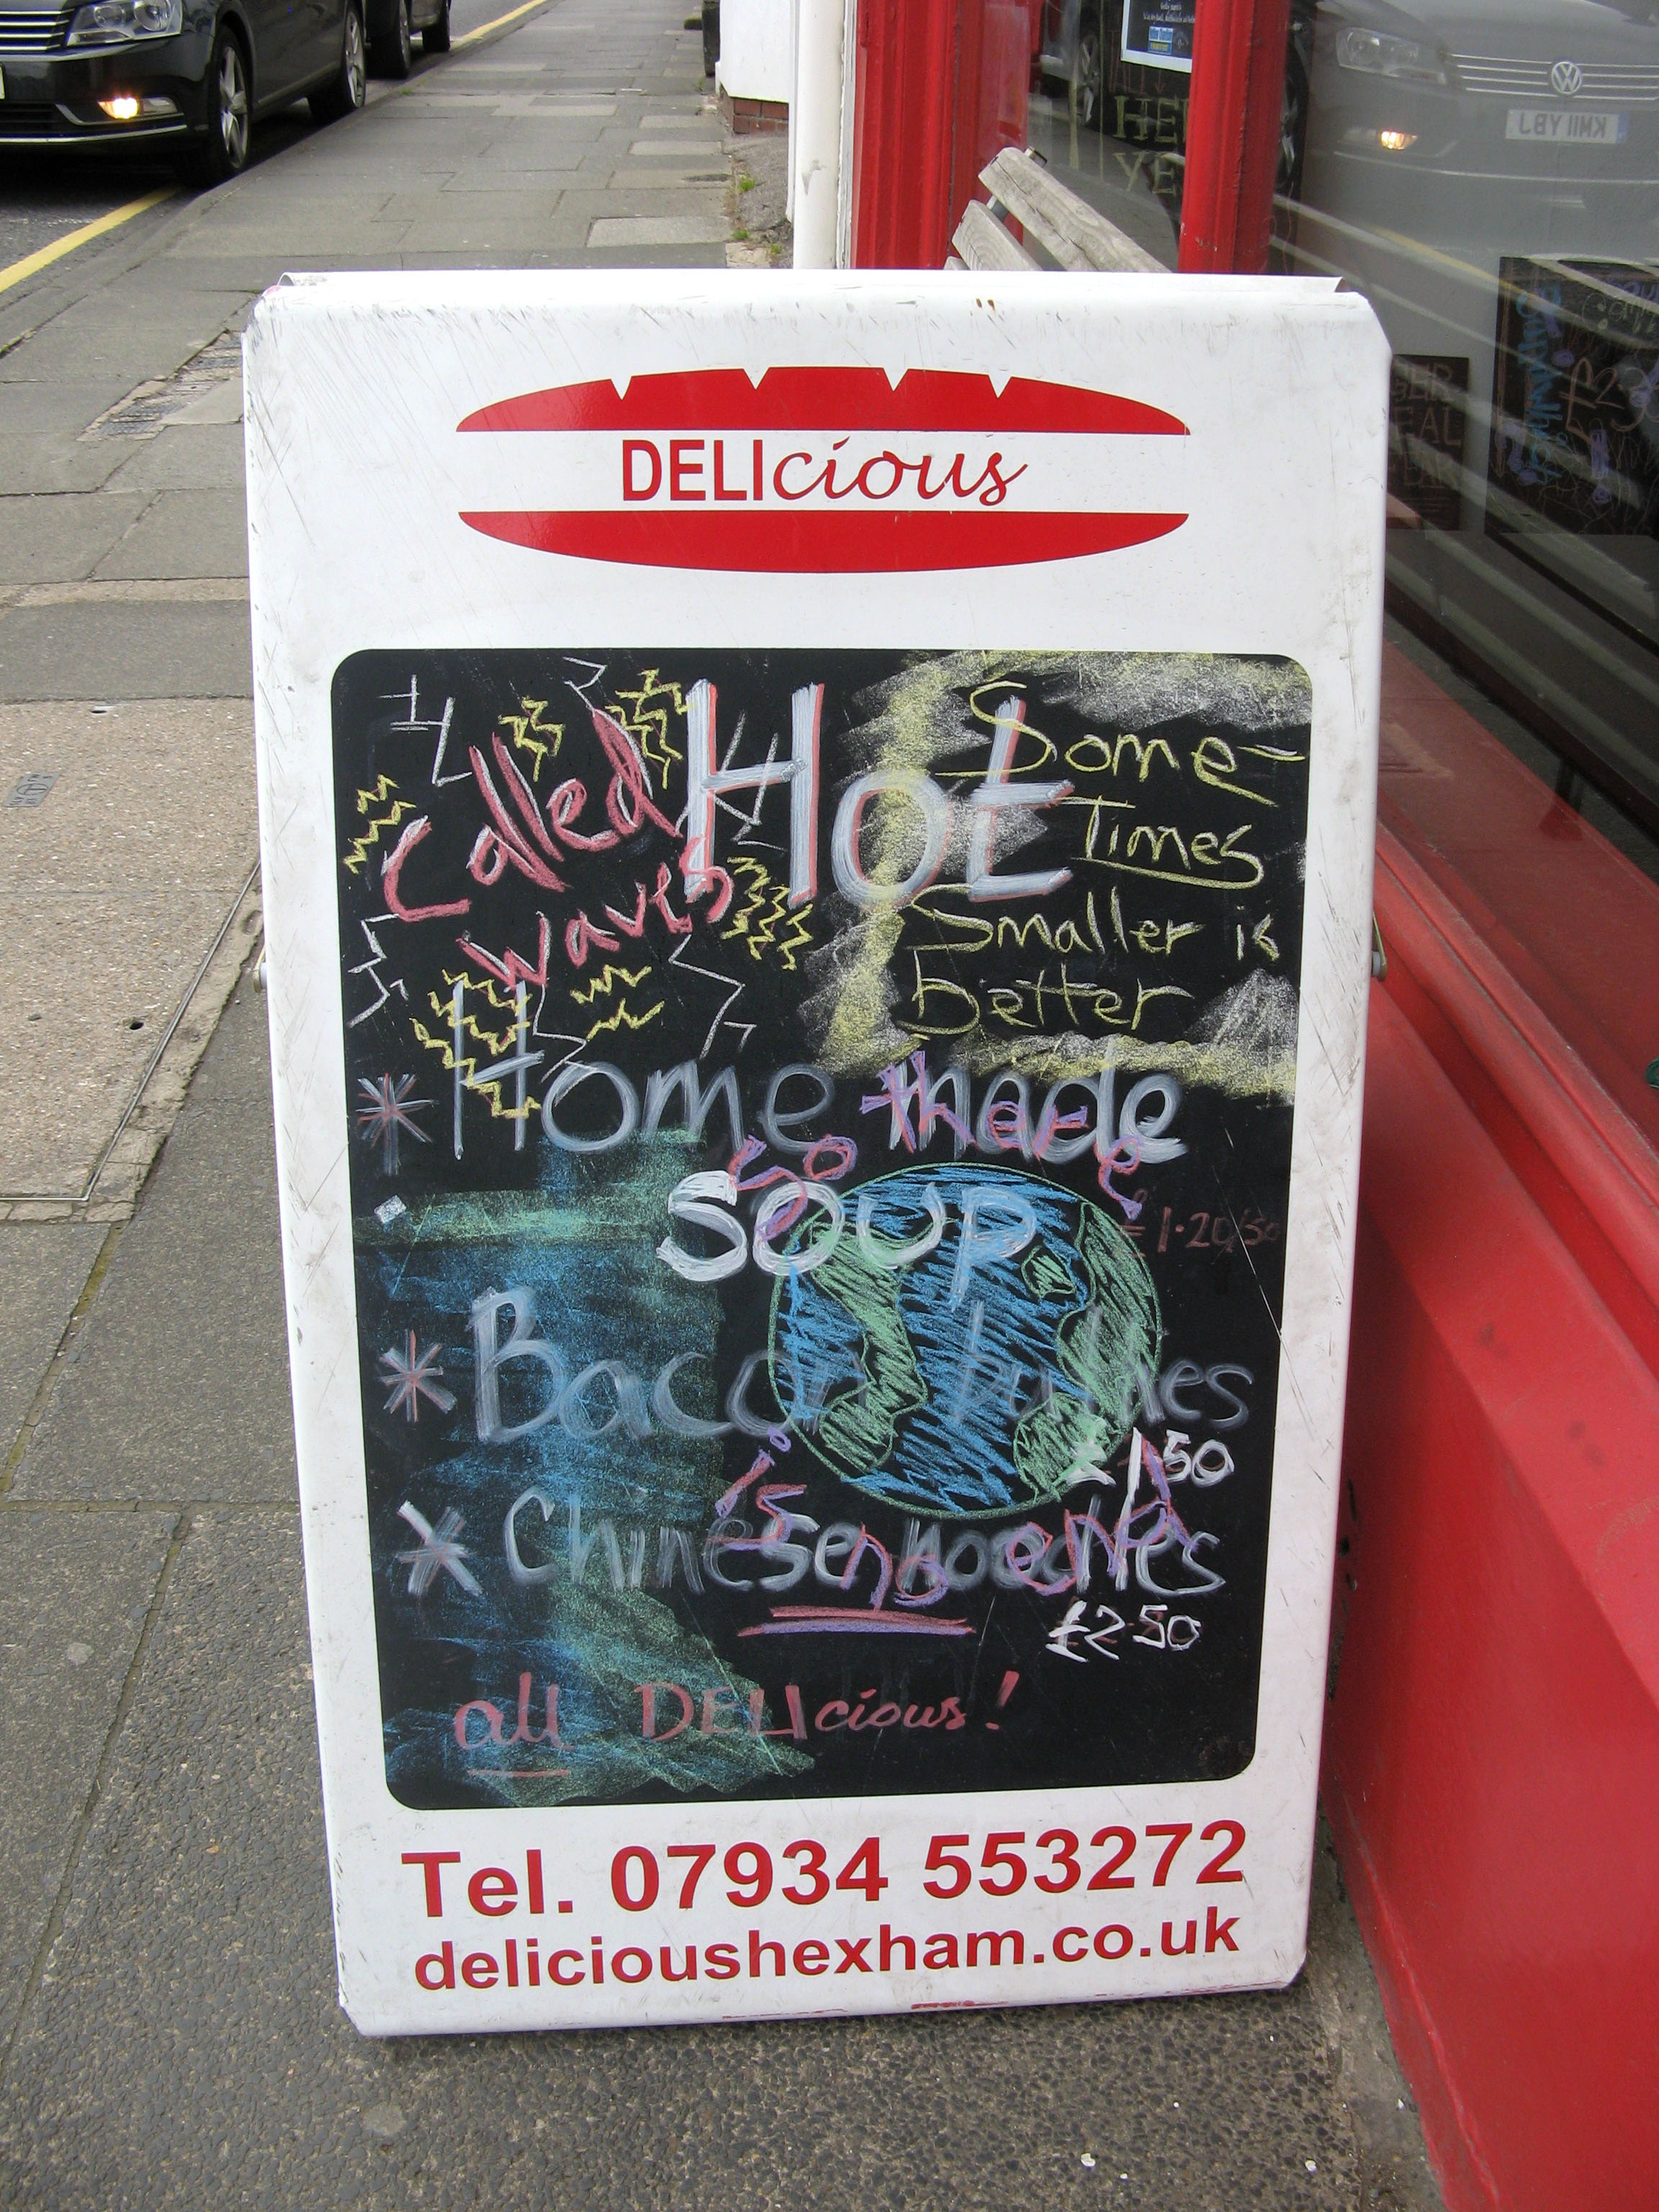 DELIcious
Called
waves
Hot
Some-
Times
Smaller is
better
* Home made
so there
soup
£1.20/50
* Bacon
£1.50
is no end
* Chinese noodles
£2.50
all DELIcious!
Tel. 07934 553272
delicioushexham.co.uk
HE
YE